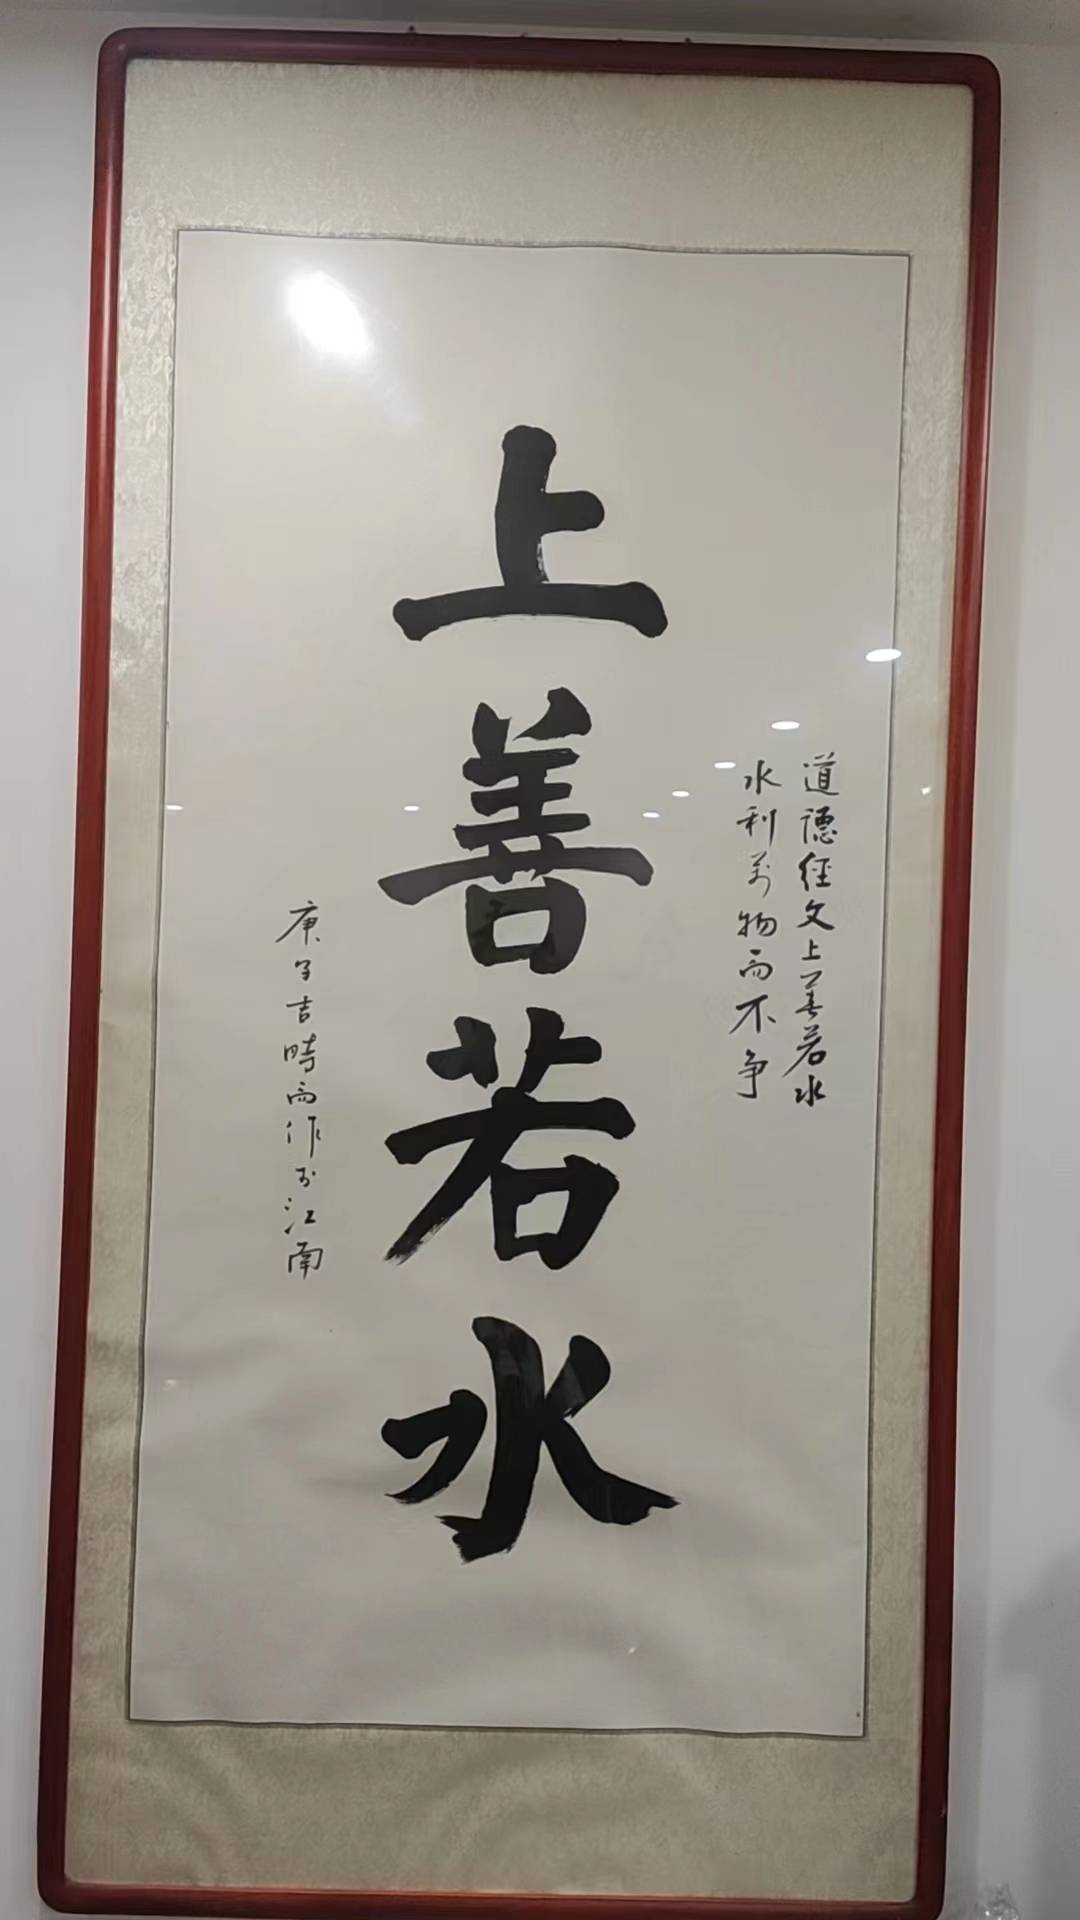 道德经文上善若水
水利万物而不争
上善若水
庚子吉時而作於江南